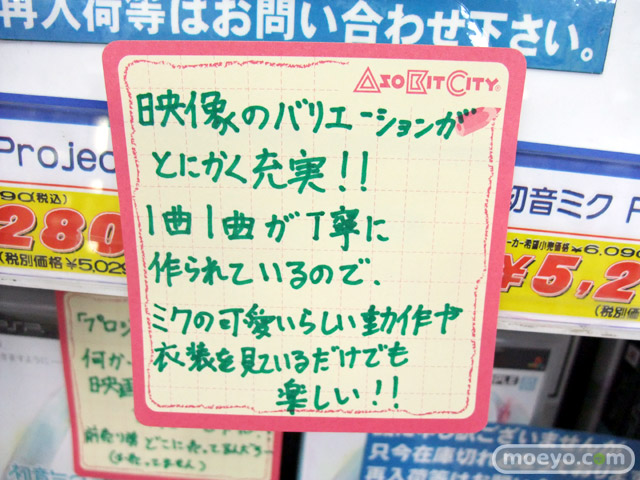 再入荷等はお問い合わせ下さい。
ASOBITCITY
映像のバリエーションが
とにかく充実!!
1曲1曲が丁寧に
作られているので、
ミクの可愛いらしい動作や
衣装を見ているだけでも
楽しい!!
Projec
90(税込)
280
(税別価格¥5,029
初音ミク P
ーカー希望小売価格 ¥6,090
¥5,2
(税別
「プロジ
何か
映画
どこに売って
只今在庫切れ
再入荷等は
moeyo.com